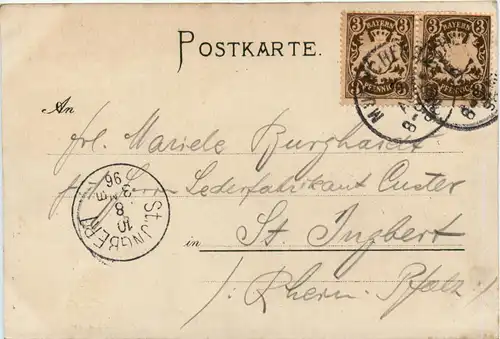 POSTKARTE.
3 BAYERN 3
PFENNIG
3 BAYERN 3
PFENNIG
An
Frl. Mariele Burghardt
Herrn Lederfabrikant Custer
in St. Ingbert
/: Rhein. Pfalz :/
ST. INGBERT
3
8
10
96